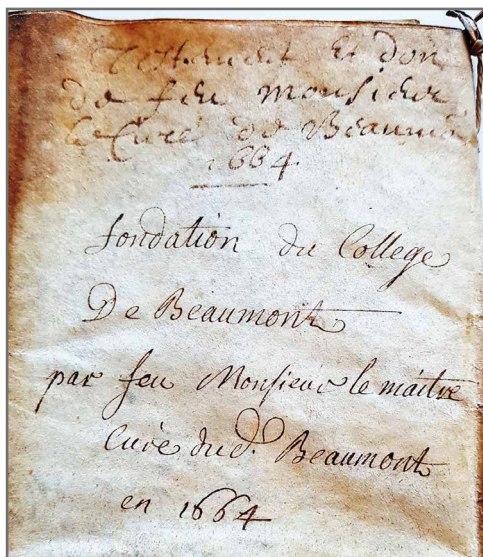 Testament et don
de feu monsieur
le Curé de Beaumo
1664
fondation du College
De Beaumont
par feu Monsieur le maitre
Curé dud. Beaumont
en 1664